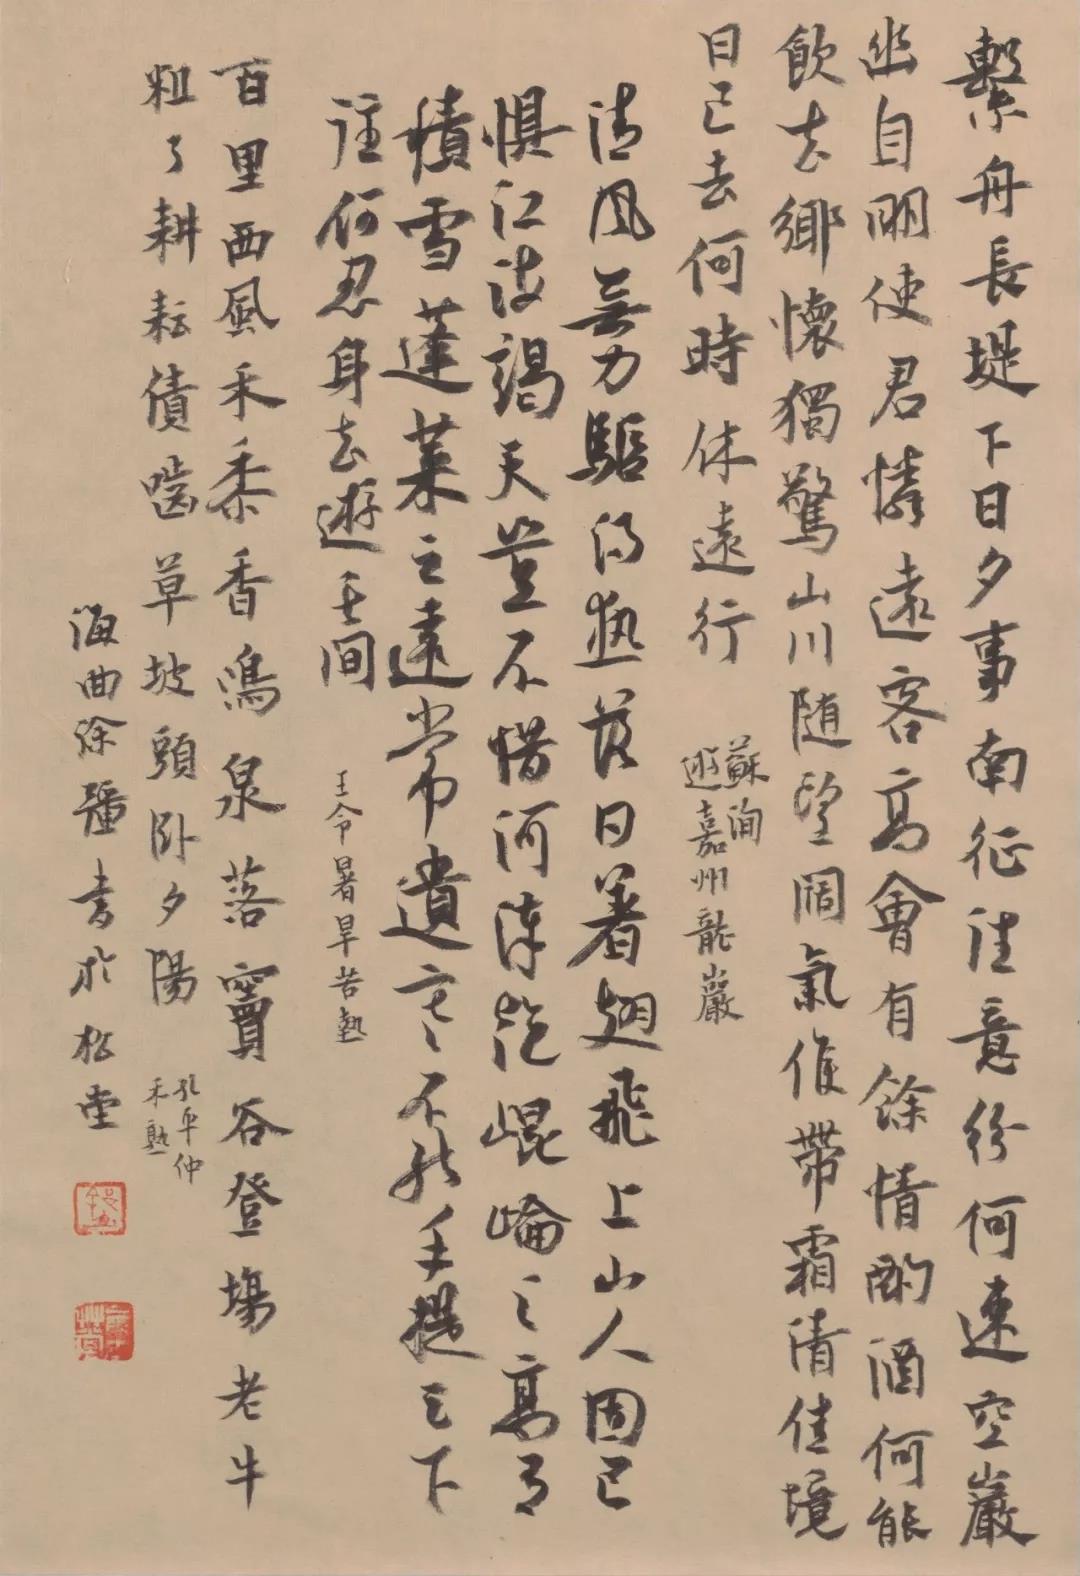 繫舟長堤下日夕事南征往意紛何速空巖
幽自明使君憐遠客高會有餘情酌酒何能
飲去鄉懷獨驚山川随望闊氣候帶霜清佳境
日已去何時休遠行
蘇洵
遊嘉州龍巖
清風無力驅得熱落日著翅飛上山人固已
懼江海竭天豈不惜河漢乾崐崘之高有
積雪蓬萊之遠常遺寒不能手提天下
往何忍身去遊其間
王令暑旱苦熱
百里西風禾黍香鳴泉落竇谷登場老牛
粗了耕耘債嚙草坡頭臥夕陽
孔平仲
禾熟
海曲徐書於松堂